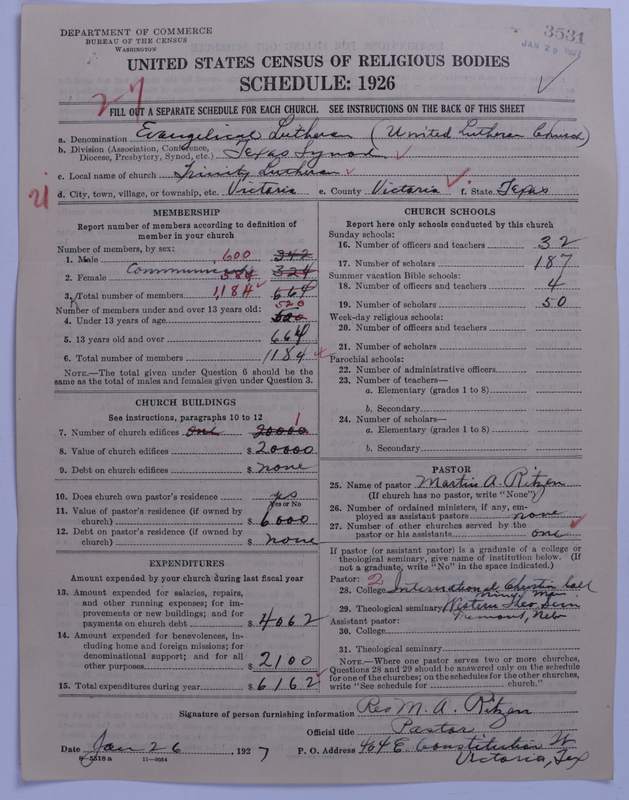 DEPARTMENT OF COMMERCE
BUREAU OF THE CENSUS
WASHINGTON
3531
JAN 29 1927
UNITED STATES CENSUS OF RELIGIOUS BODIES
SCHEDULE: 1926
2-7
FILL OUT A SEPARATE SCHEDULE FOR EACH CHURCH. SEE INSTRUCTIONS ON THE BACK OF THIS SHEET
a. Denomination Evangelical Lutheran (United Lutheran Church)
b. Division (Association, Conference, Diocese, Presbytery, Synod, etc.) Texas Synod
c. Local name of church Trinity Lutheran
d. City, town, village, or township, etc. Victoria e. County Victoria f. State Texas
MEMBERSHIP
Report number of members according to definition of member in your church
Number of members, by sex:
1. Male 600 342
2. Female 584 324
3. Total number of members 1,184 664
Number of members under and over 13 years old:
4. Under 13 years of age 520
5. 13 years old and over 664
6. Total number of members 1184
NOTE.—The total given under Question 6 should be the same as the total of males and females given under Question 3.
CHURCH BUILDINGS
See instructions, paragraphs 10 to 12
7. Number of church edifices One 20000 1
8. Value of church edifices $ 20000
9. Debt on church edifices $ none
10. Does church own pastor's residence yes
Yes or No
11. Value of pastor's residence (if owned by church) $ 6000
12. Debt on pastor's residence (if owned by church) $ none
EXPENDITURES
Amount expended by your church during last fiscal year
13. Amount expended for salaries, repairs, and other running expenses; for improvements or new buildings; and for payments on church debt $ 4062
14. Amount expended for benevolences, including home and foreign missions; for denominational support; and for all other purposes $ 2100
15. Total expenditures during year $ 6162
CHURCH SCHOOLS
Report here only schools conducted by this church
Sunday schools:
16. Number of officers and teachers 32
17. Number of scholars 187
Summer vacation Bible schools:
18. Number of officers and teachers 4
19. Number of scholars 50
Week-day religious schools:
20. Number of officers and teachers
21. Number of scholars
Parochial schools:
22. Number of administrative officers
23. Number of teachers—
a. Elementary (grades 1 to 8)
b. Secondary
24. Number of scholars—
a. Elementary (grades 1 to 8)
b. Secondary
PASTOR
25. Name of pastor Martin A. Ritzen
(If church has no pastor, write "None")
26. Number of ordained ministers, if any, employed as assistant pastors none
27. Number of other churches served by the pastor or his assistants one
If pastor (or assistant pastor) is a graduate of a college or theological seminary, give name of institution below. (If not a graduate, write "No" in the space indicated.)
Pastor: 2
28. College International Christian Coll
29. Theological seminary Western Theo Sem
Fremont, Neb
Assistant pastor:
30. College
31. Theological seminary
NOTE.—Where one pastor serves two or more churches, Questions 28 and 29 should be answered only on the schedule for one of the churches; on the schedules for the other churches, write "See schedule for church."
Signature of person furnishing information Rev M. A. Ritzen
Official title Pastor
Date Jan 26, 1927 P. O. Address 464 E. Constitution
Victoria, Tex
8-5318a 11-9054